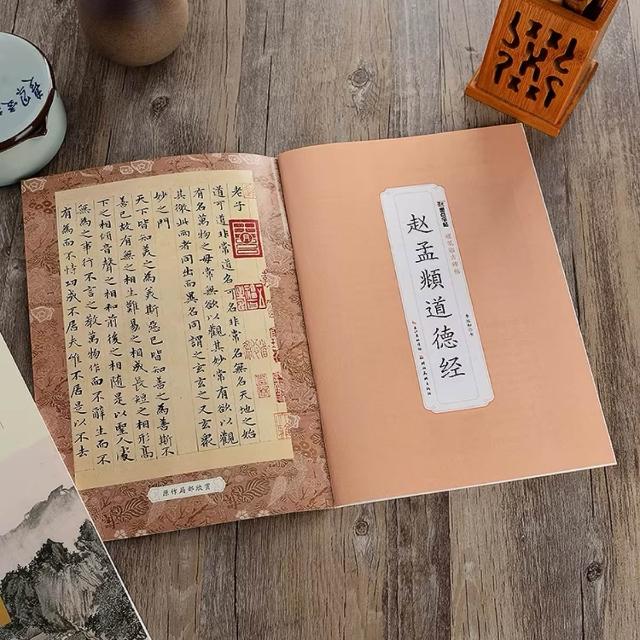 老子
道可道非常道名可名非常名無名天地之始
有名萬物之母常無欲以觀其妙常有欲以觀
其徼此两者同出而異名同謂之玄玄之又玄衆
妙之門
天下皆知美之為美斯惡已皆知善之為善斯不
善已故有無之相生難易之相成長短之相形高
下之相傾音聲之相和前後之相隨是以聖人處
無為之事行不言之教萬物作而不辭生而不
有為而不恃功成不居夫惟不居是以不去
原作局部欣赏
墨点字帖
硬笔临古碑帖
赵孟頫道德经